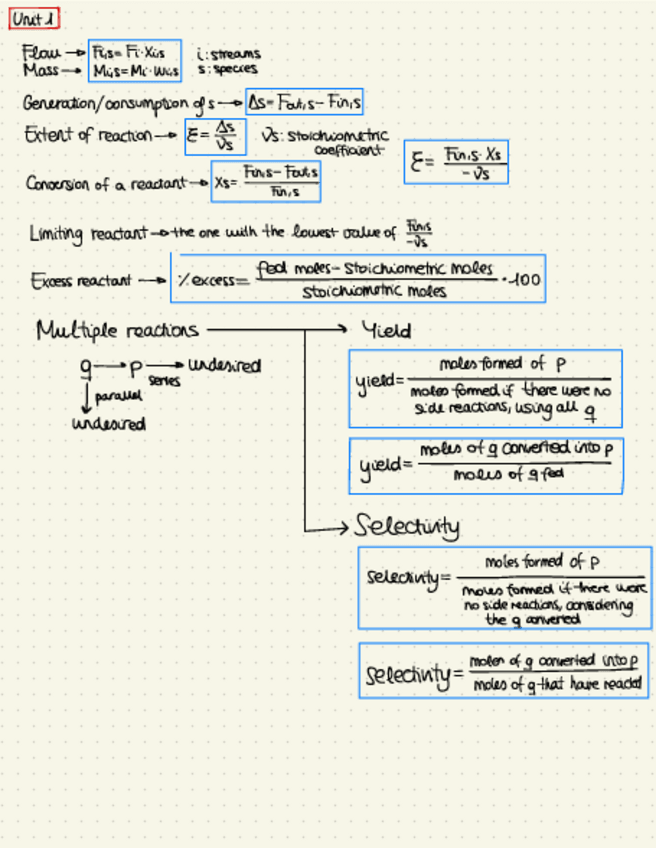 Unit 1
Flow → Fi,s = Fi · Xi,s i: streams
Mass → Mi,s = Mi · Wi,s s: species
Generation/consumption of s → Δs = Fout,s − Fin,s
Extent of reaction → ξ = Δs / νs νs: stoichiometric coefficient
ξ = Fin,s · Xs / −νs
Conversion of a reactant → Xs = Fin,s − Fout,s / Fin,s
Limiting reactant → the one with the lowest value of Fin,s / −νs
Excess reactant → % excess = fed moles − stoichiometric moles / stoichiometric moles · 100
Multiple reactions → Yield
q → p → undesired
series
parallel
undesired
yield = moles formed of p / moles formed if there were no side reactions, using all q
yield = moles of q converted into p / moles of q fed
Selectivity
selectivity = moles formed of p / moles formed if there were no side reactions, considering the q converted
selectivity = moles of q converted into p / moles of q that have reacted